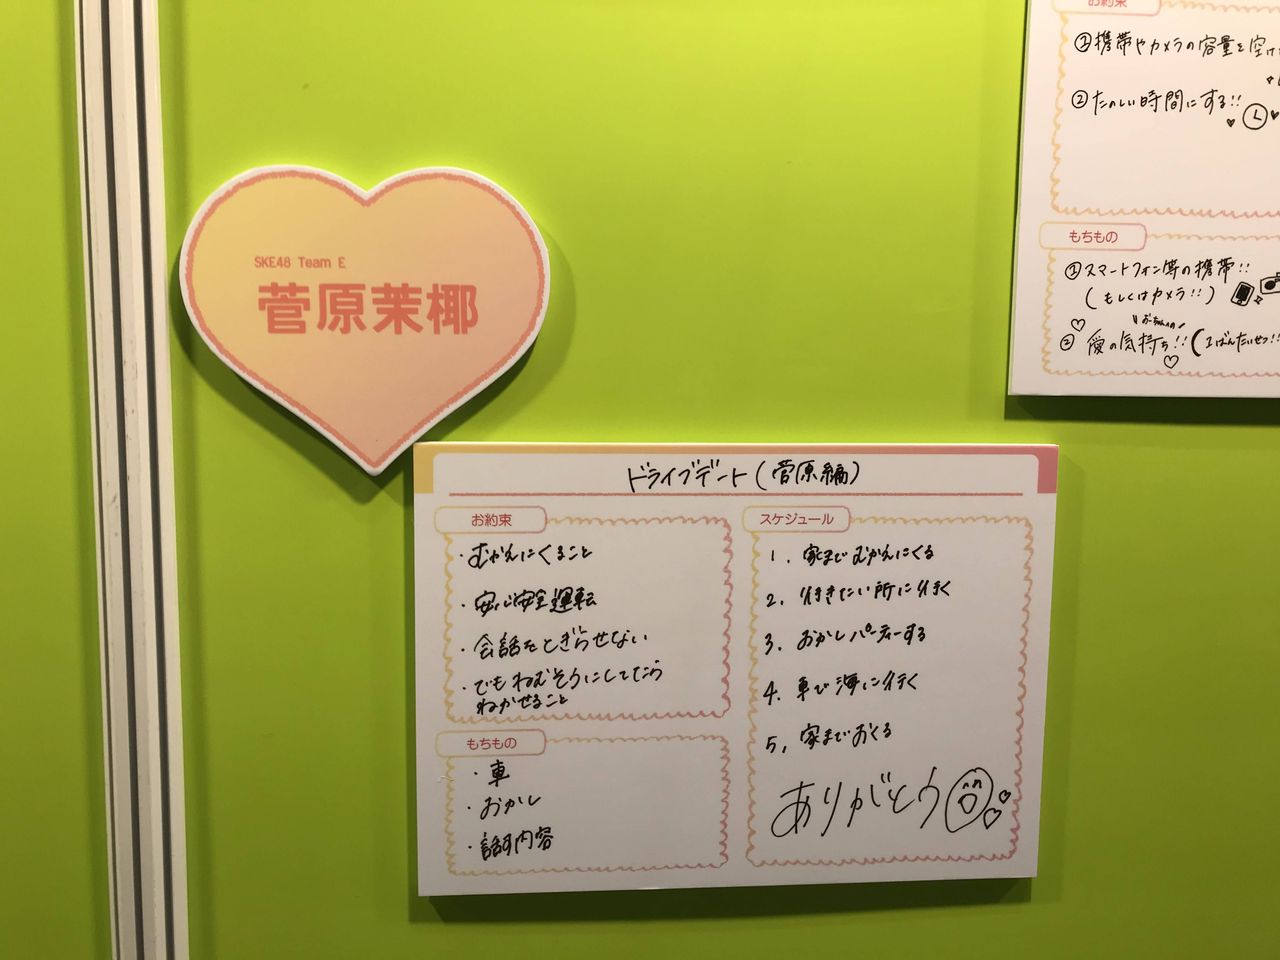 SKE48 Team E
菅原茉椰
ドライブデート(菅原編)
お約束
・むかえにくること
・安心安全運転
・会話をとぎらせない
・でもねむそうにしてたら
ねかせること
もちもの
・車
・おかし
・話す内容
スケジュール
1. 家までむかえにくる
2. 行きたい所に行く
3. おかしパーティーする
4. 車で海に行く
5. 家までおくる
ありがとう
お約束
①携帯やカメラの容量を空け
②たのしい時間にする!!
もちもの
①スマートフォン等の携帯!!
(もしくはカメラ!!)
② 愛の気持ち!! (1ばんたいせつ!!